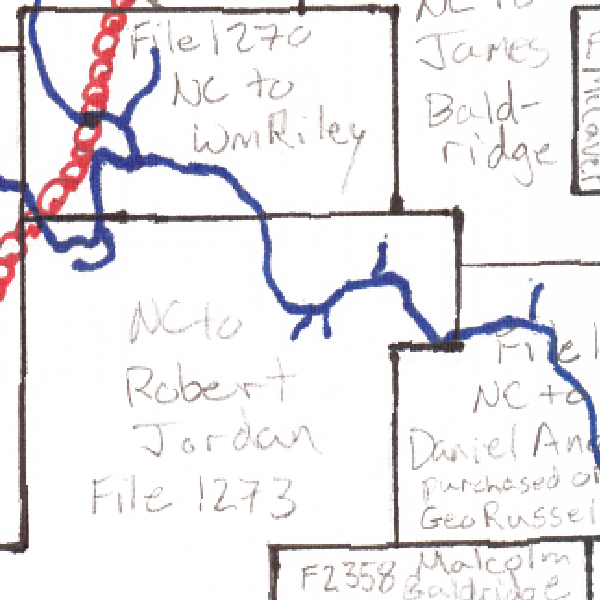 File 1270
NC to
Wm Riley
NC to
James
Bald-
ridge
NC to
Robert
Jordan
File 1273
File
NC to
Daniel
purchased
Geo Russell
F2358 Malcolm
Baldridge